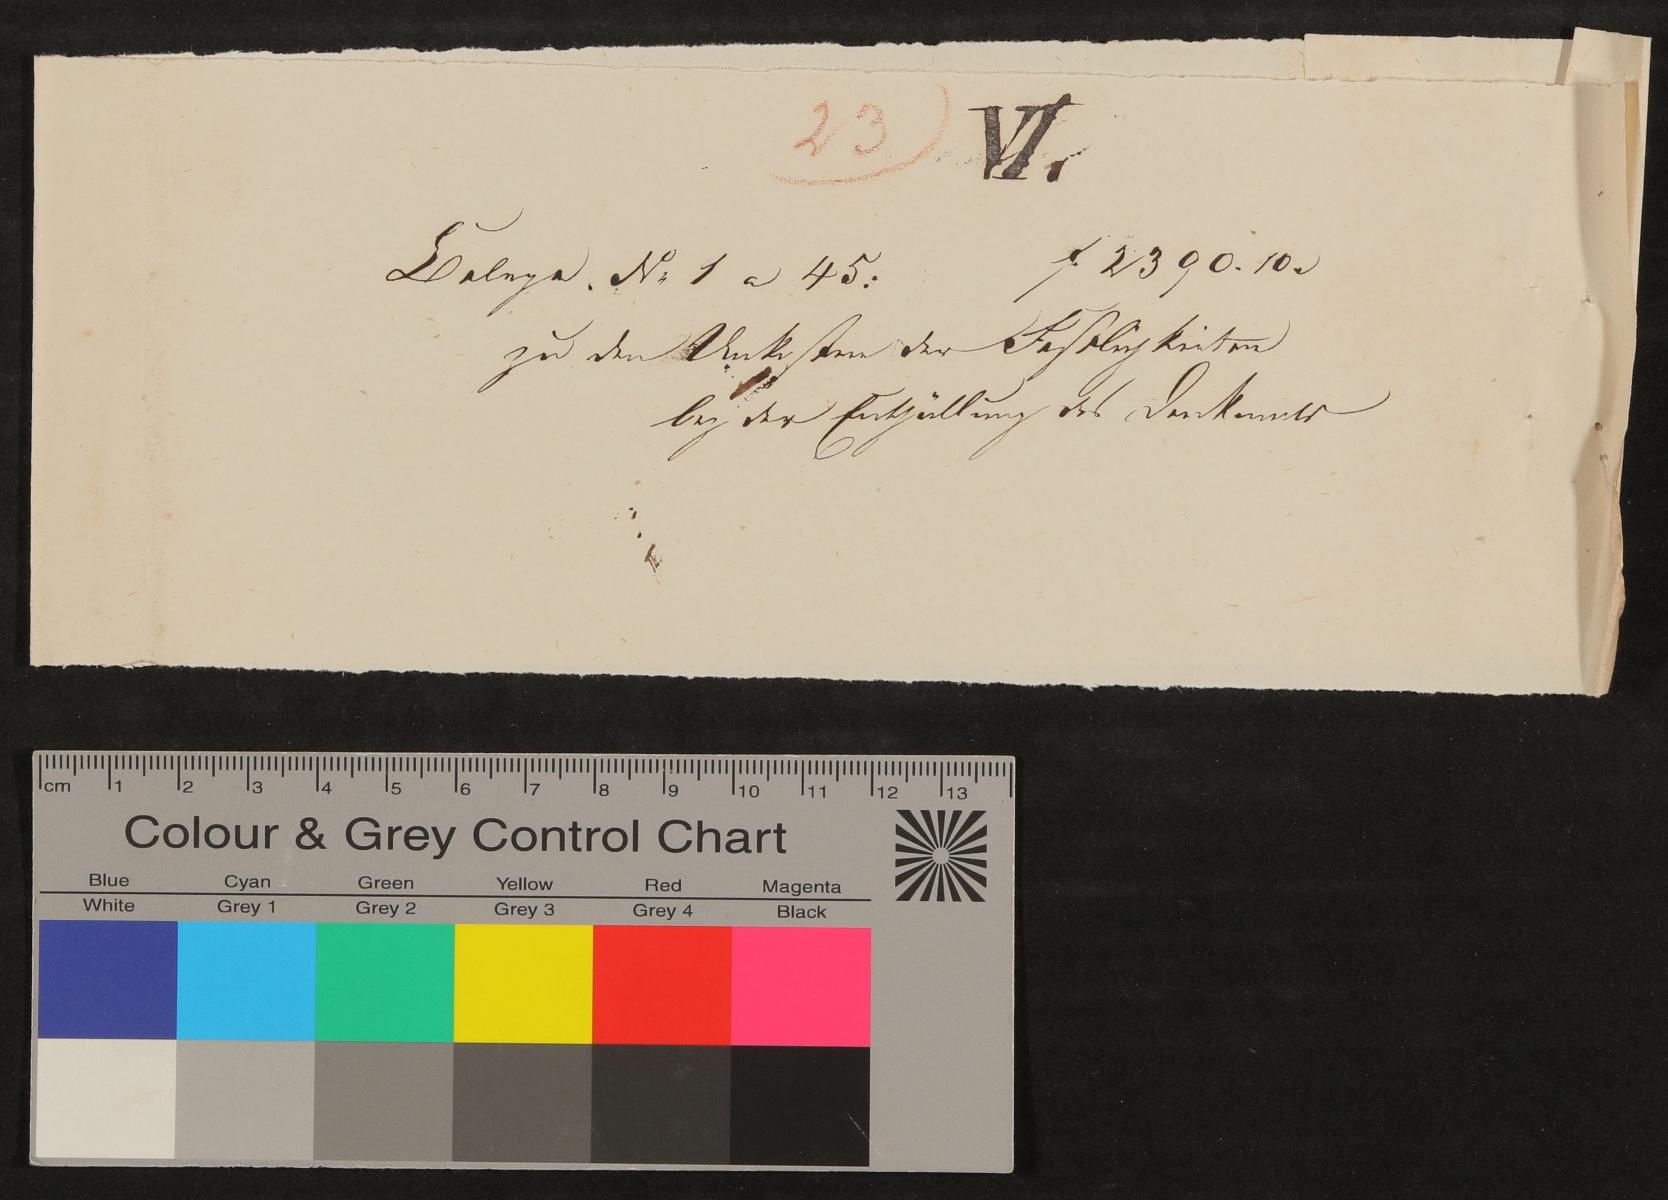 23 VI.
Belege. No 1 a 45: f 2390.10.
zu den Unkosten der Festlichkeiten
bey der Enthüllung des Denkmals
cm 1 2 3 4 5 6 7 8 9 10 11 12 13
Colour & Grey Control Chart
Blue Cyan Green Yellow Red Magenta
White Grey 1 Grey 2 Grey 3 Grey 4 Black